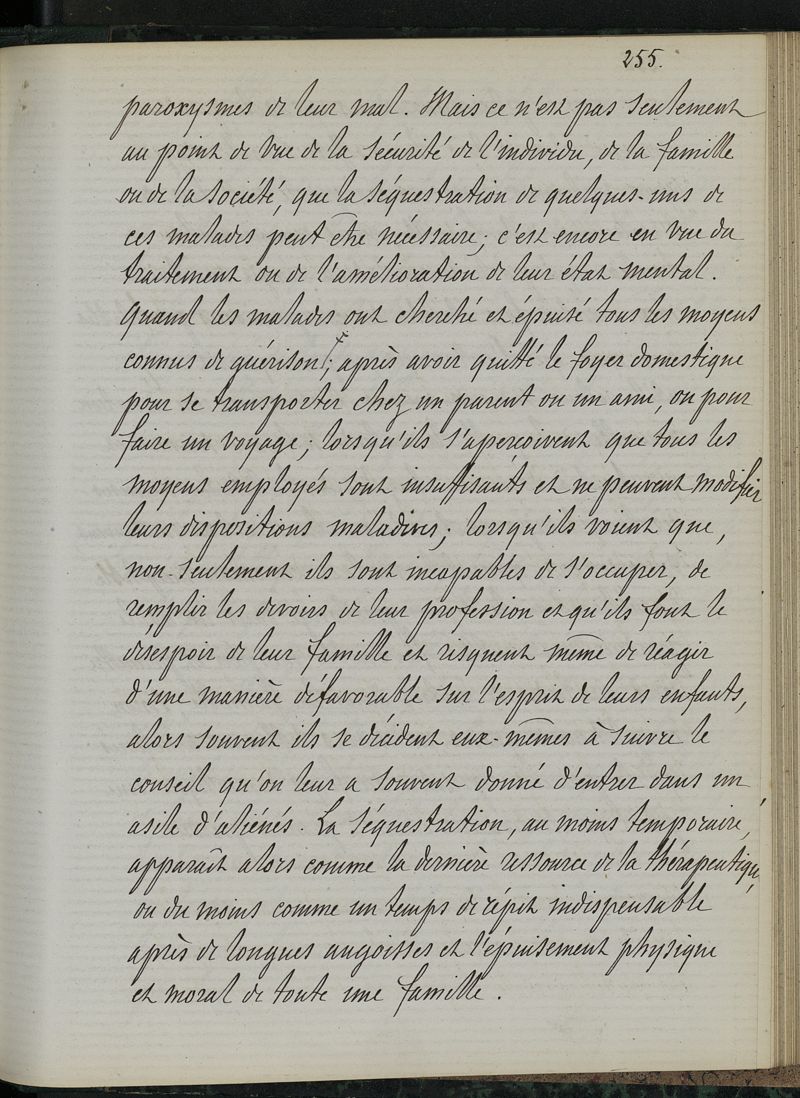 255.
paroxysmes de leur mal. Mais ce n'est pas seulement
au point de vue de la sécurité de l'individu, de la famille
ou de la société, que la séquestration de quelques-uns de
ces malades peut être nécessaire; c'est encore en vue du
traitement ou de l'amélioration de leur état mental.
Quand les malades ont cherché et épuisé tous les moyens
connus de guérison; après avoir quitté le foyer domestique
pour se transporter chez un parent ou un ami, ou pour
faire un voyage; lorsqu'ils s'aperçoivent que tous les
moyens employés sont insuffisants et ne peuvent modifier
leurs dispositions maladives; lorsqu'ils voient que,
non-seulement ils sont incapables de s'occuper, de
remplir les devoirs de leur profession et qu'ils font le
désespoir de leur famille et risquent même de réagir
d'une manière défavorable sur l'esprit de leurs enfants,
alors souvent ils se décident eux-mêmes à suivre le
conseil qu'on leur a souvent donné d'entrer dans un
asile d'aliénés. La séquestration, au moins temporaire,
apparaît alors comme la dernière ressource de la thérapeutique,
ou du moins comme un temps de répit indispensable
après de longues angoisses et l'épuisement physique
et moral de toute une famille.